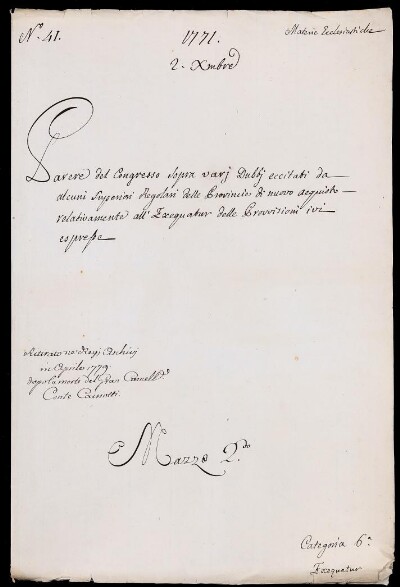 N.º 41.
1771.
Materie Ecclesiastiche
2. Xmbre
Parere del Congresso sopra varj Dubbj eccitati da
alcuni Superiori Regolari delle Provincie di nuovo acquisto
relativamente all'Exequatur delle Provvisioni ivi
espresse
Ritirato ne' Regj Archivj
in Aprile 1779.
dopo la morte del Gran Cancell.e
Conte Caissotti.
Mazzo 2.do
Categoria 6.a
Exequatur